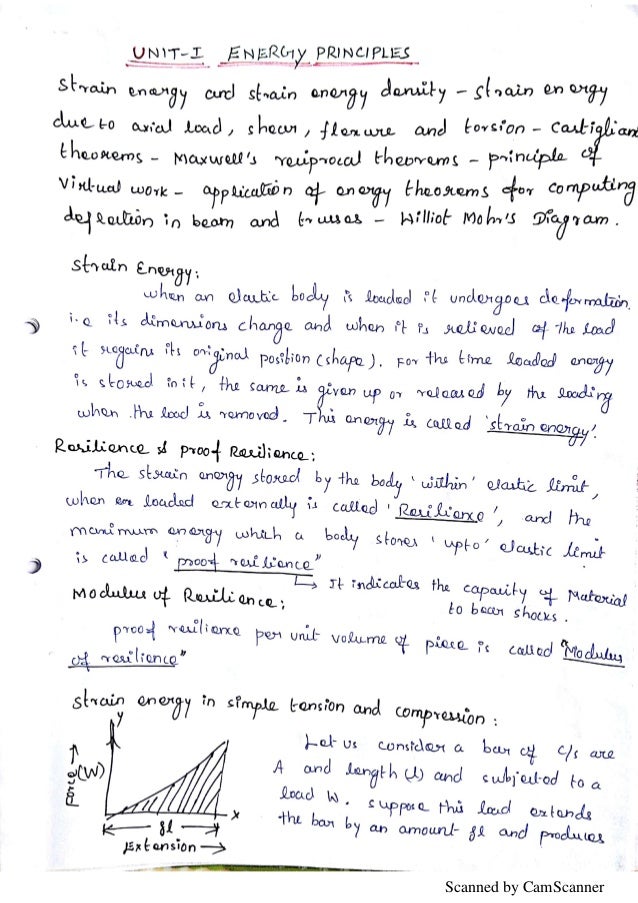 UNIT-I ENERGY PRINCIPLES
Strain energy and strain energy density - strain energy
due to axial load, shear, flexure and torsion - castiglian
theorems - Maxwell's reciprocal theorems - principle of
Virtual work - application of energy theorems for computing
deflection in beam and trusses - Williot Mohr's Diagram.
Strain Energy:
When an elastic body is loaded it undergoes deformation.
i.e its dimensions change and when it is relieved of the load
it regains its original position (shape). For the time loaded energy
is stored in it, the same is given up or released by the loading
when the load is removed. This energy is called 'strain energy'.
Resilience & proof Resilience:
The strain energy stored by the body 'within' elastic limit,
when loaded externally is called 'Resilience', and the
maximum energy which a body stores 'upto' elastic limit
is called "proof resilience"
It indicates the capacity of Material
to bear shocks.
Modulus of Resilience:
proof resilience per unit volume of piece is called "Modulus
of resilience"
Strain energy in simple tension and compression:
y
Force (W)
x
δl
Extension
Let us consider a bar of c/s are
A and length (l) and subjected to a
load W. suppose this load extends
the bar by an amount δl and produces
Scanned by CamScanner